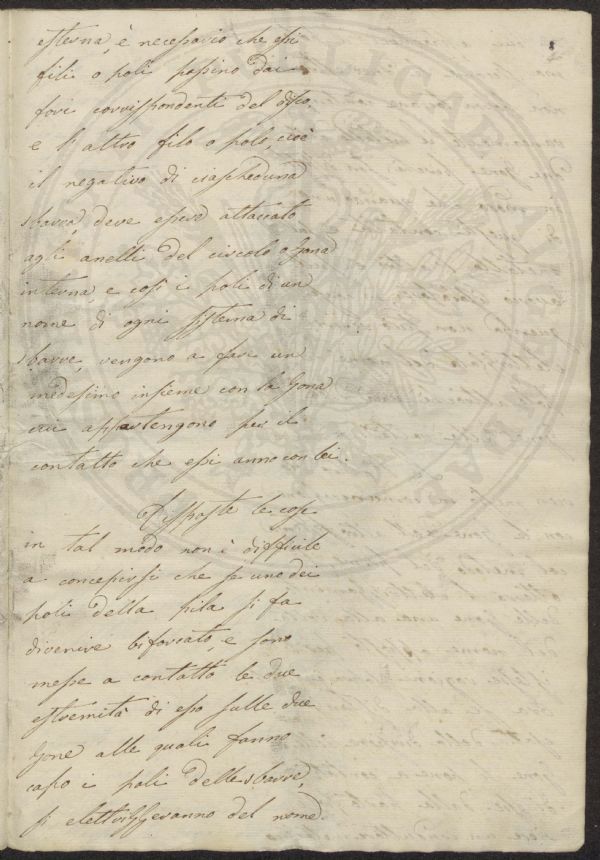 esterna, è necessario che essi
fili o poli passino dai
fori corrisspondenti del disco,
e l'altro filo o polo, cioè
il negativo di ciascheduna
sbarra, deve essere attaccato
agli anelli del circolo o zona
interna, e così i poli di un
nome di ogni sistema di
sbarre, vengono a fare un
medesimo insieme con la zona
cui appartengono per il
contatto che essi anno con lei.
Dissposte le cose
in tal modo non è difficile
a concepirsi che se uno dei
poli della pila si fa
divenire biforcato, e sono
messe a contatto le due
estremità di esso sulle due
zone alle quali fanno
capo i poli delle sbarre,
si elettrizzeranno del nome